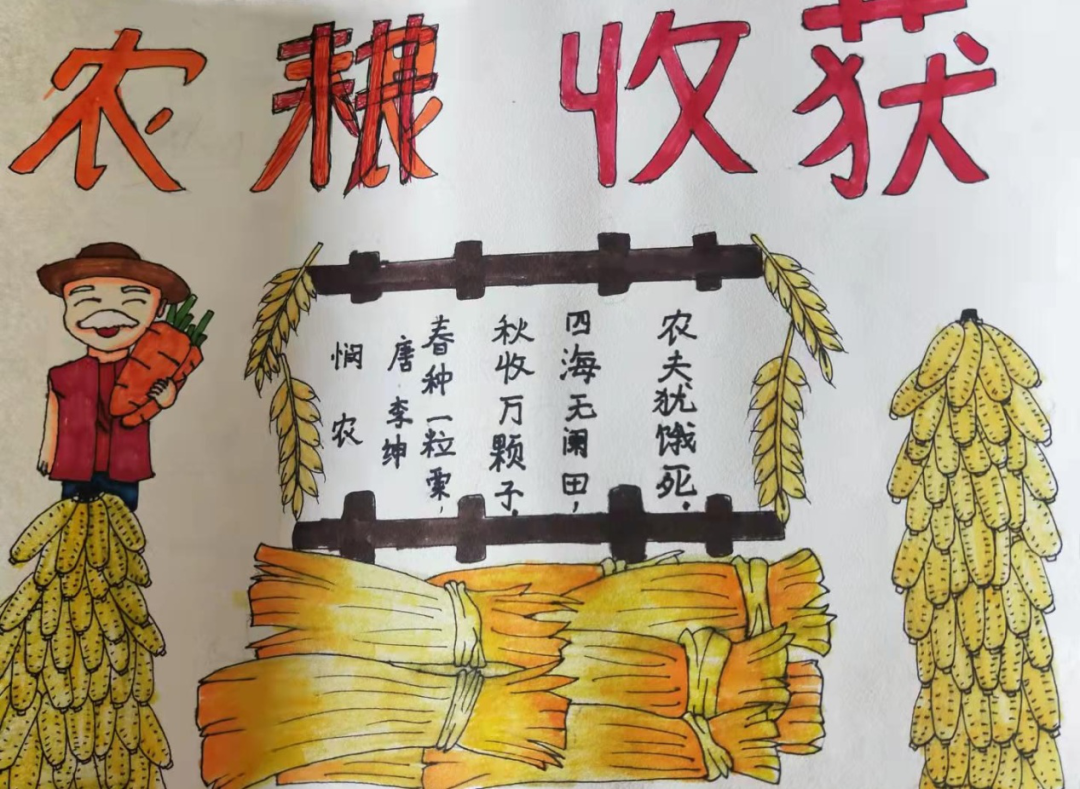 农耕收获
悯农
唐·李绅
春种一粒粟，
秋收万颗子。
四海无阑田，
农夫犹饿死。